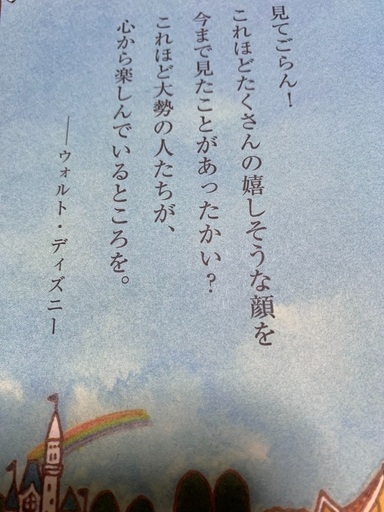 見てごらん！
これほどたくさんの嬉しそうな顔を
今まで見たことがあったかい？
これほど大勢の人たちが、
心から楽しんでいるところを。
──ウォルト・ディズニー